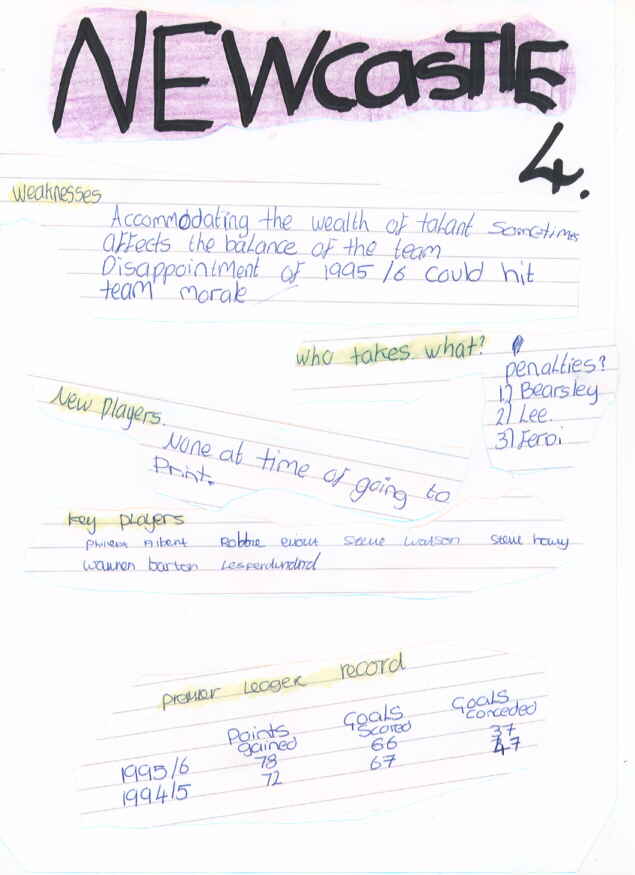 NEWcasTLE
4.
Weaknesses
Accommodating the wealth of talant sometimes
affects the balance of the team
Disappointment of 1995/6 could hit
team morale
who takes what?
penalties?
1) Bearsley
2) Lee.
3) Feroi
New players.
None at time of going to
Print.
key players
Albert Robbie Steve Watson Steve howy
warren barton Lesferdindnd
premier Leager record
Points gained Goals Scored Goals conceded
1995/6 78 66 37
1994/5 72 67 47